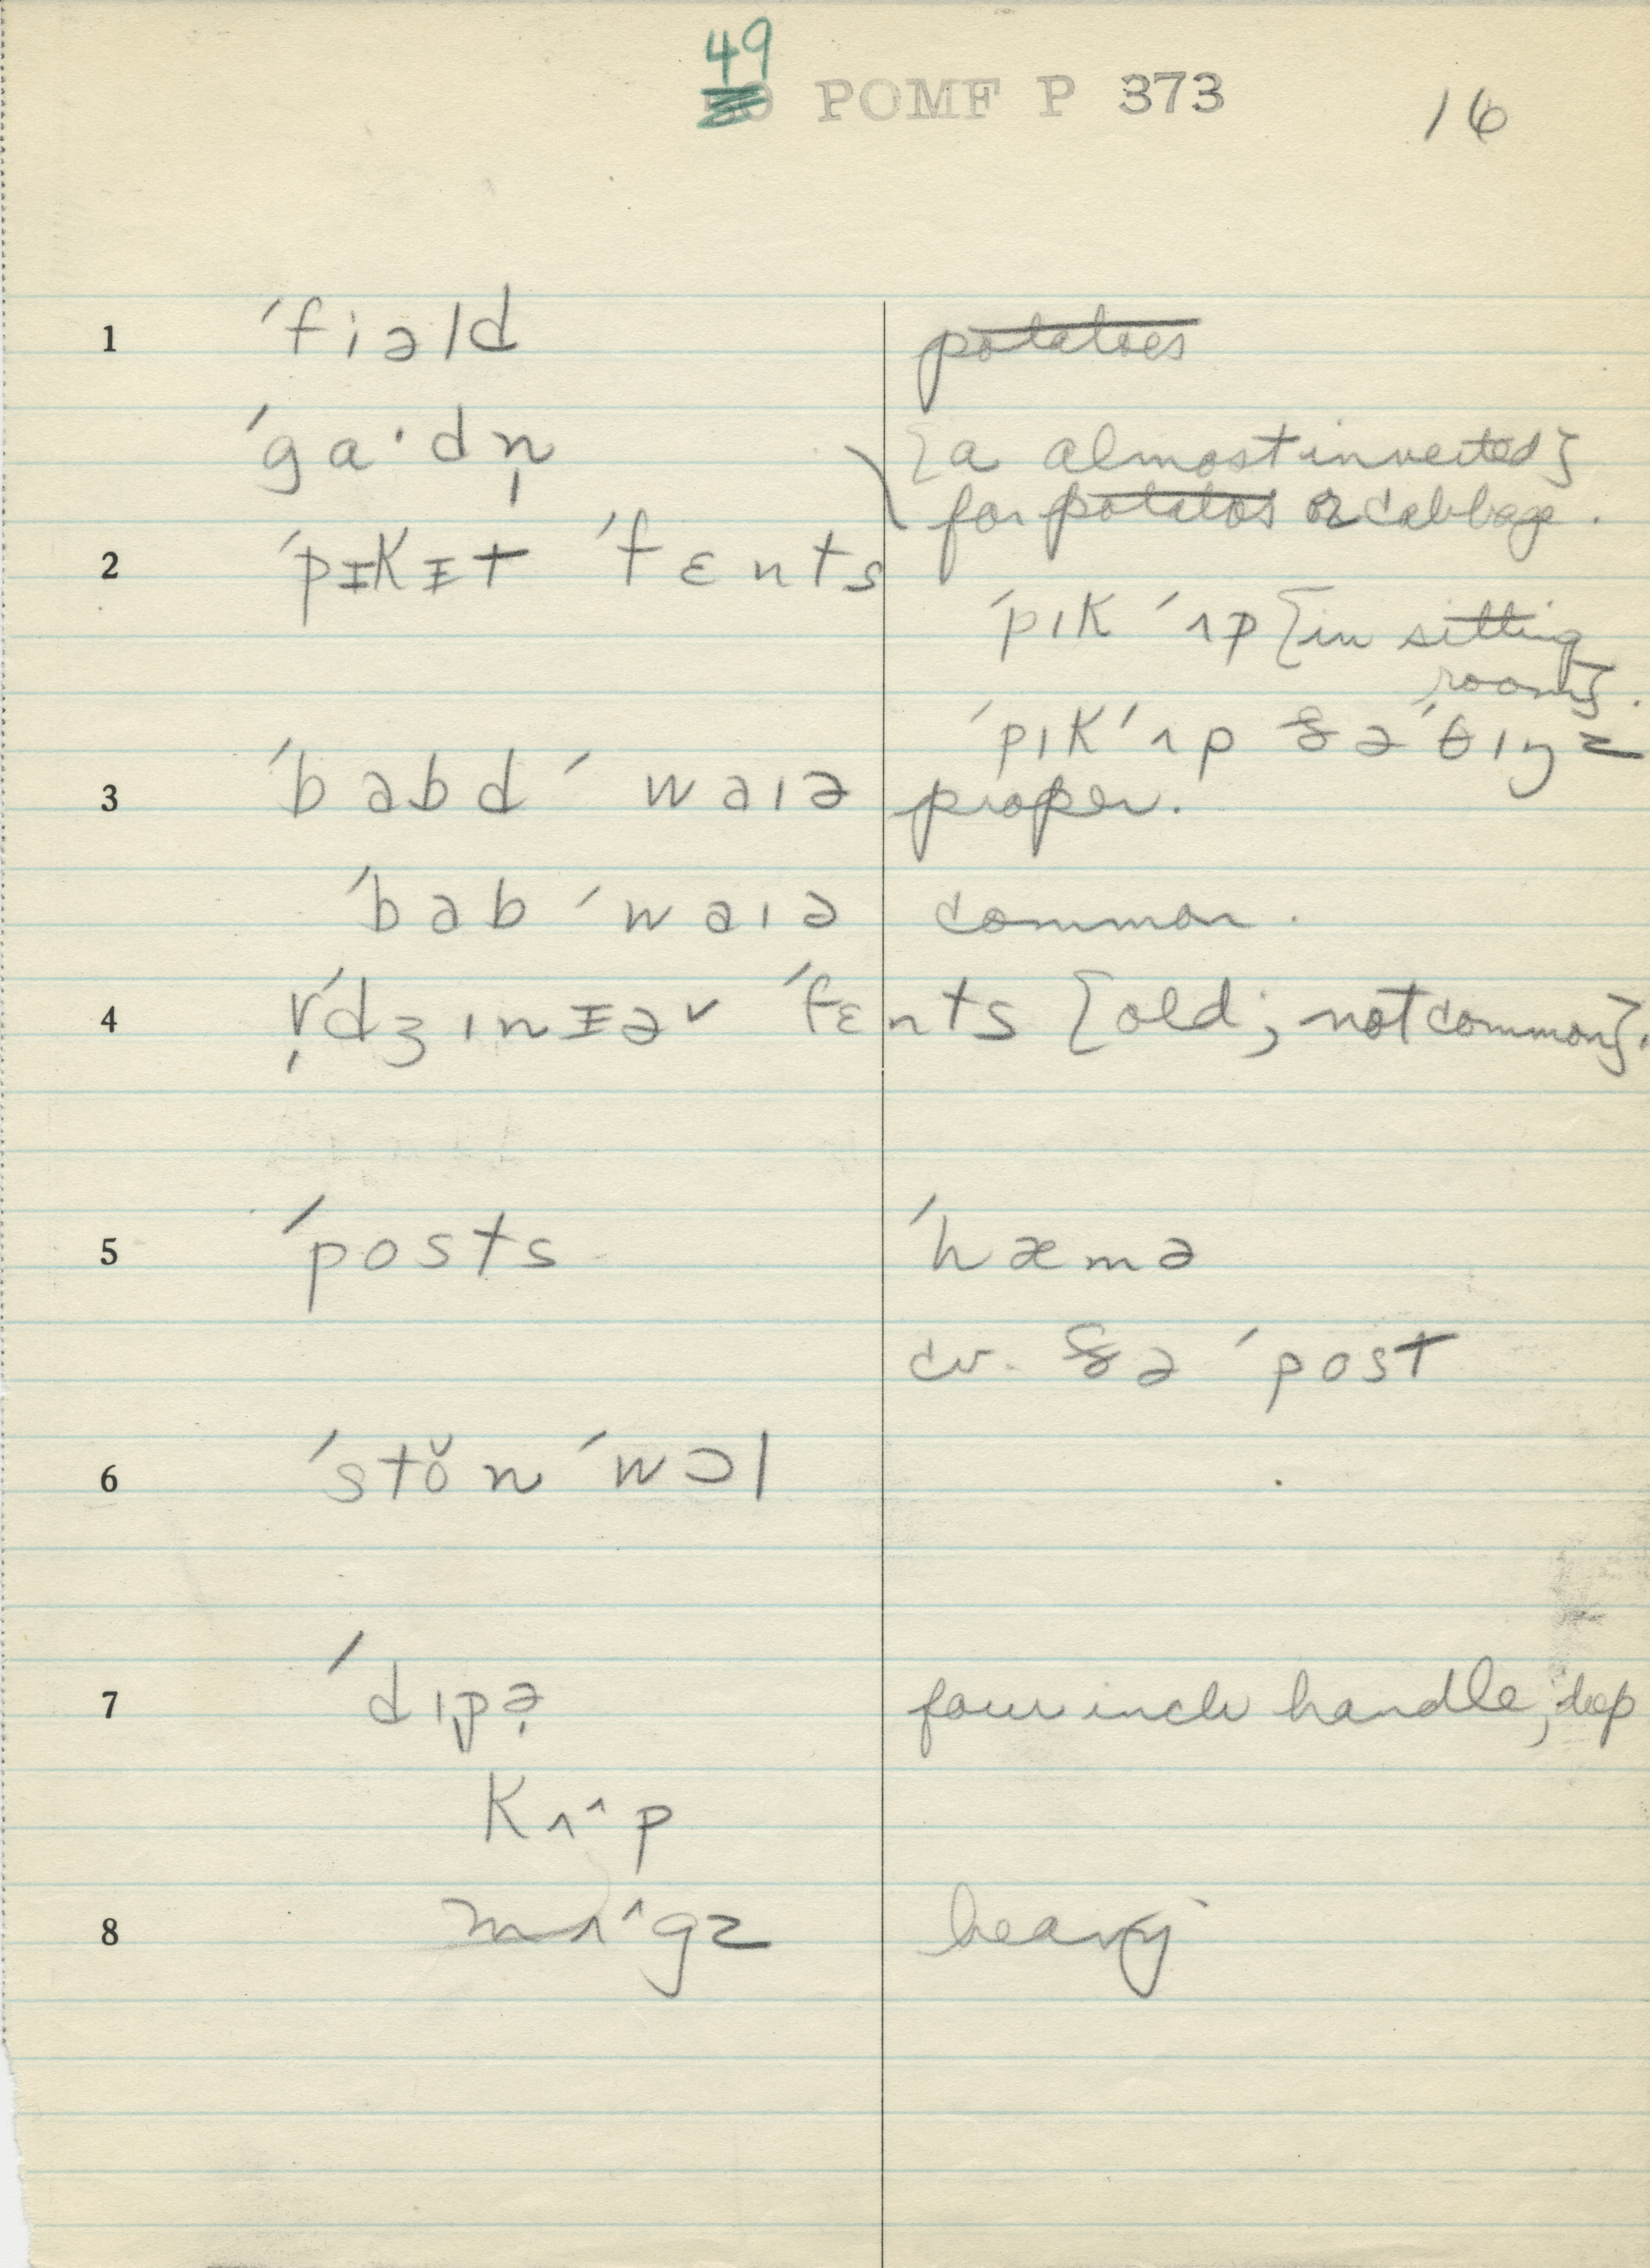 49
50 POMF P 373 16
1 ˊfiəld potatoes
ˊga·dn̩ [a almost inverted]
for potatos or cabbage.
2 ˊpᵻkᵻt ˊfɛnts
ˊpɪk ˊʌp [in sitting
room].
ˊpɪkˊʌp ðəˊθɪŋz
3 ˊbabdˊwaɪə proper.
ˊbabˊwaɪə common.
4 ˊdʒɪnᵻəv ˊfɛnts [old; not common].
5 ˊposts ˊhæmə
cv. ðə ˊpost
6 ˊstŏnˊwɔl
7 ˊdɪpə̣ four inch handle, deep
kʌ^p
8 mʌ^gz heavy